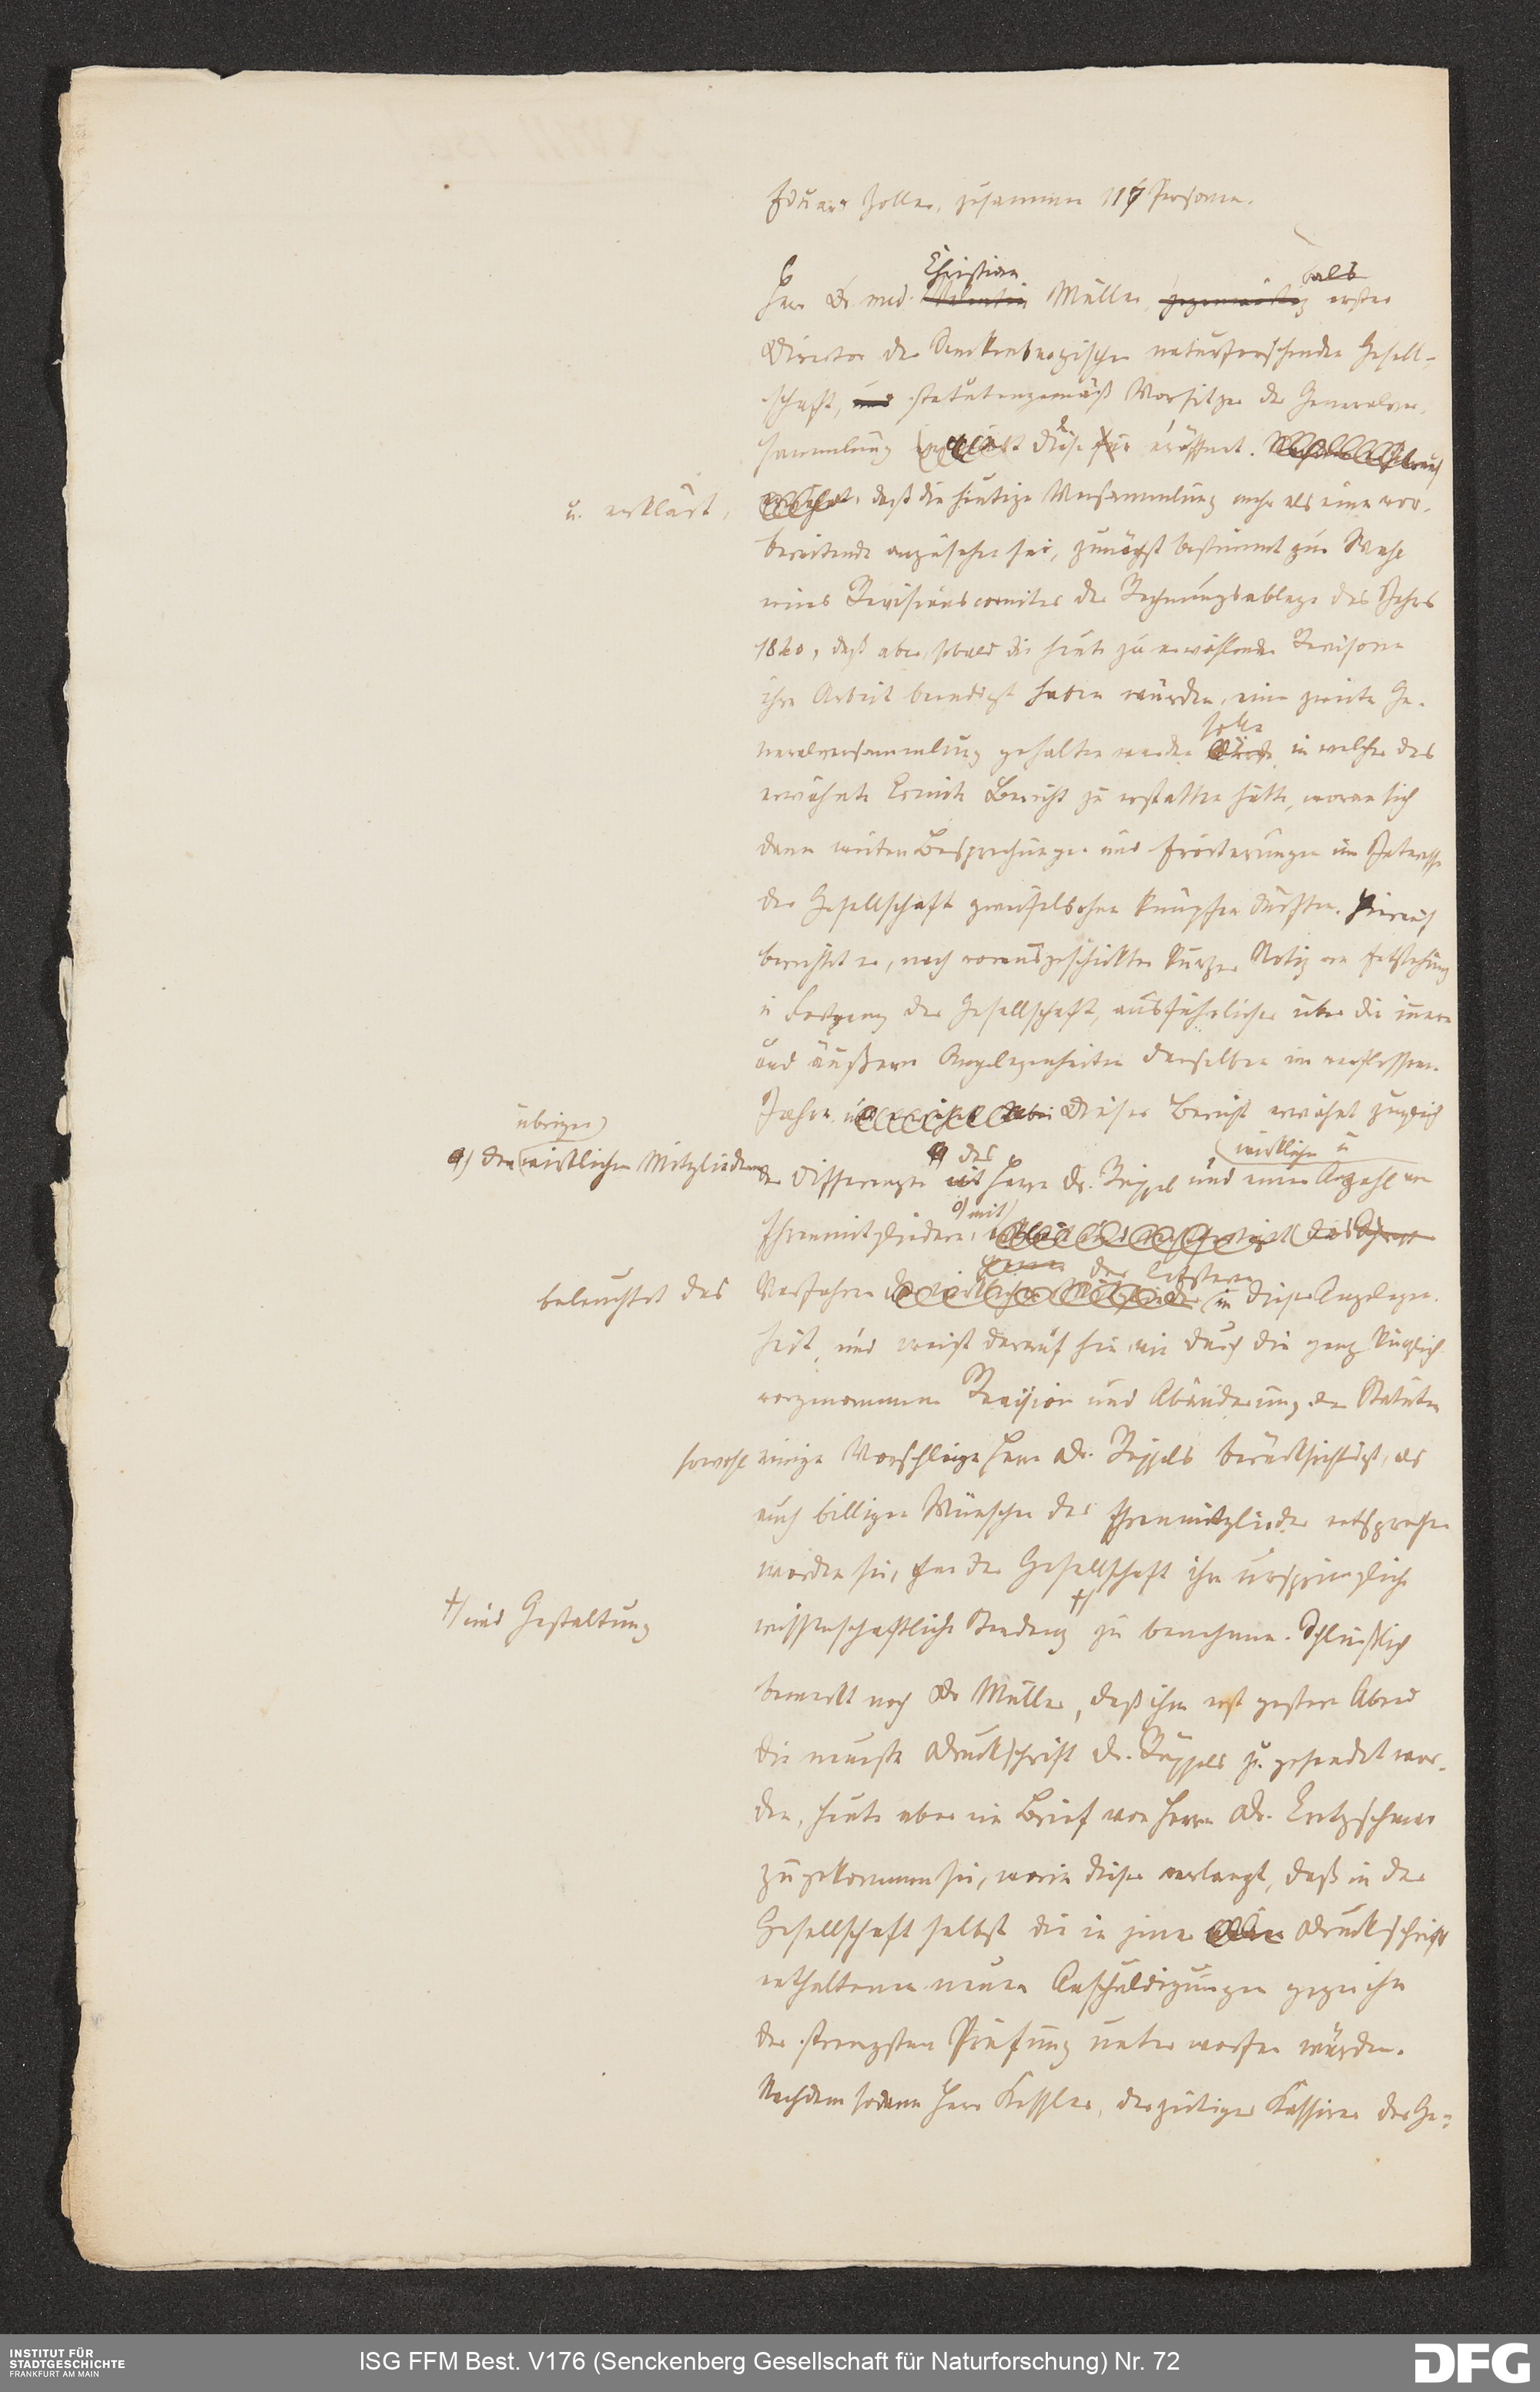 Eduard Zoller, zusammen 117 Personen.
Christian
als
Herr Dr. med. Valentin Müller, gegenwärtig erster
Director der Senckenbergischen naturforschenden Gesell-
schaft, und statutengemäß Vorsitzer der Generalver-
sammlung erklärt diese für eröffnet.
u. erklärt,
daß die heutige Versammlung mehr als eine vor-
bereitende anzusehen sei, zunächst bestimmt zur Wahl
eines Revisionscomites der Rechnungsablage des Jahrs
1840, daß aber, sobald die heute zu erwählenden Revisoren
ihre Arbeit beendigt haben würden, eine zweite Ge-
solle
neralversammlung gehalten werden würde, in welcher das
erwähnte Comité Bericht zu erstatten hätte, woran sich
dann weitere Besprechungen und Erörterungen im Interesse
der Gesellschaft zweifelsohne knüpfen dürften. Hierauf
berichtet er, nach vorausgeschickter kurzer Notiz von Entstehung
u Fortgang der Gesellschaft, ausführlicher über die innern
und äußern Angelegenheiten derselben im verflossenen
Jahre. Dieser Bericht erwähnt zugleich
übrigen
a) den wirklichen Mitgliedern
a) des
wirkliche u
der Differenzen mit Herrn Dr. Rüppel und einer Anzahl von
o) mit
Ehrenmitgliedern,
der letztern
beleuchtet das
Verfahren der wirklichen Mitglieder in dieser Angelegen-
heit, und weist darauf hin, wie durch die ganz kürzlich
vorgenommene Revision und Abänderung der Statuten
sowohl einige Vorschläge Herrn Dr. Rüppels berücksichtigt, als
auch billigen Wünschen der Ehrenmitglieder entsprochen
worden sei, ohne der Gesellschaft ihre ursprüngliche
†) und Gestaltung
†)
wissenschaftliche Tendenz zu benehmen. Schließlich
bemerkt noch Dr Müller, daß ihm erst gestern Abend
die neueste Druckschrift Dr. Rüppels zu gesendet wor-
den, heute aber ein Brief von Herrn Dr. Cretzschmar
zugekommen sei, worin dieser verlangt, daß in der
Gesellschaft selbst die in jener Druckschrift
enthaltenen neuen Anschuldigungen gegen ihn
der strengsten Prüfung unterworfen würden.
Nachdem sodann Herr Kessler, derzeitiger Kassirer der Ge-
INSTITUT FÜR
STADTGESCHICHTE
FRANKFURT AM MAIN
ISG FFM Best. V176 (Senckenberg Gesellschaft für Naturforschung) Nr. 72
DFG